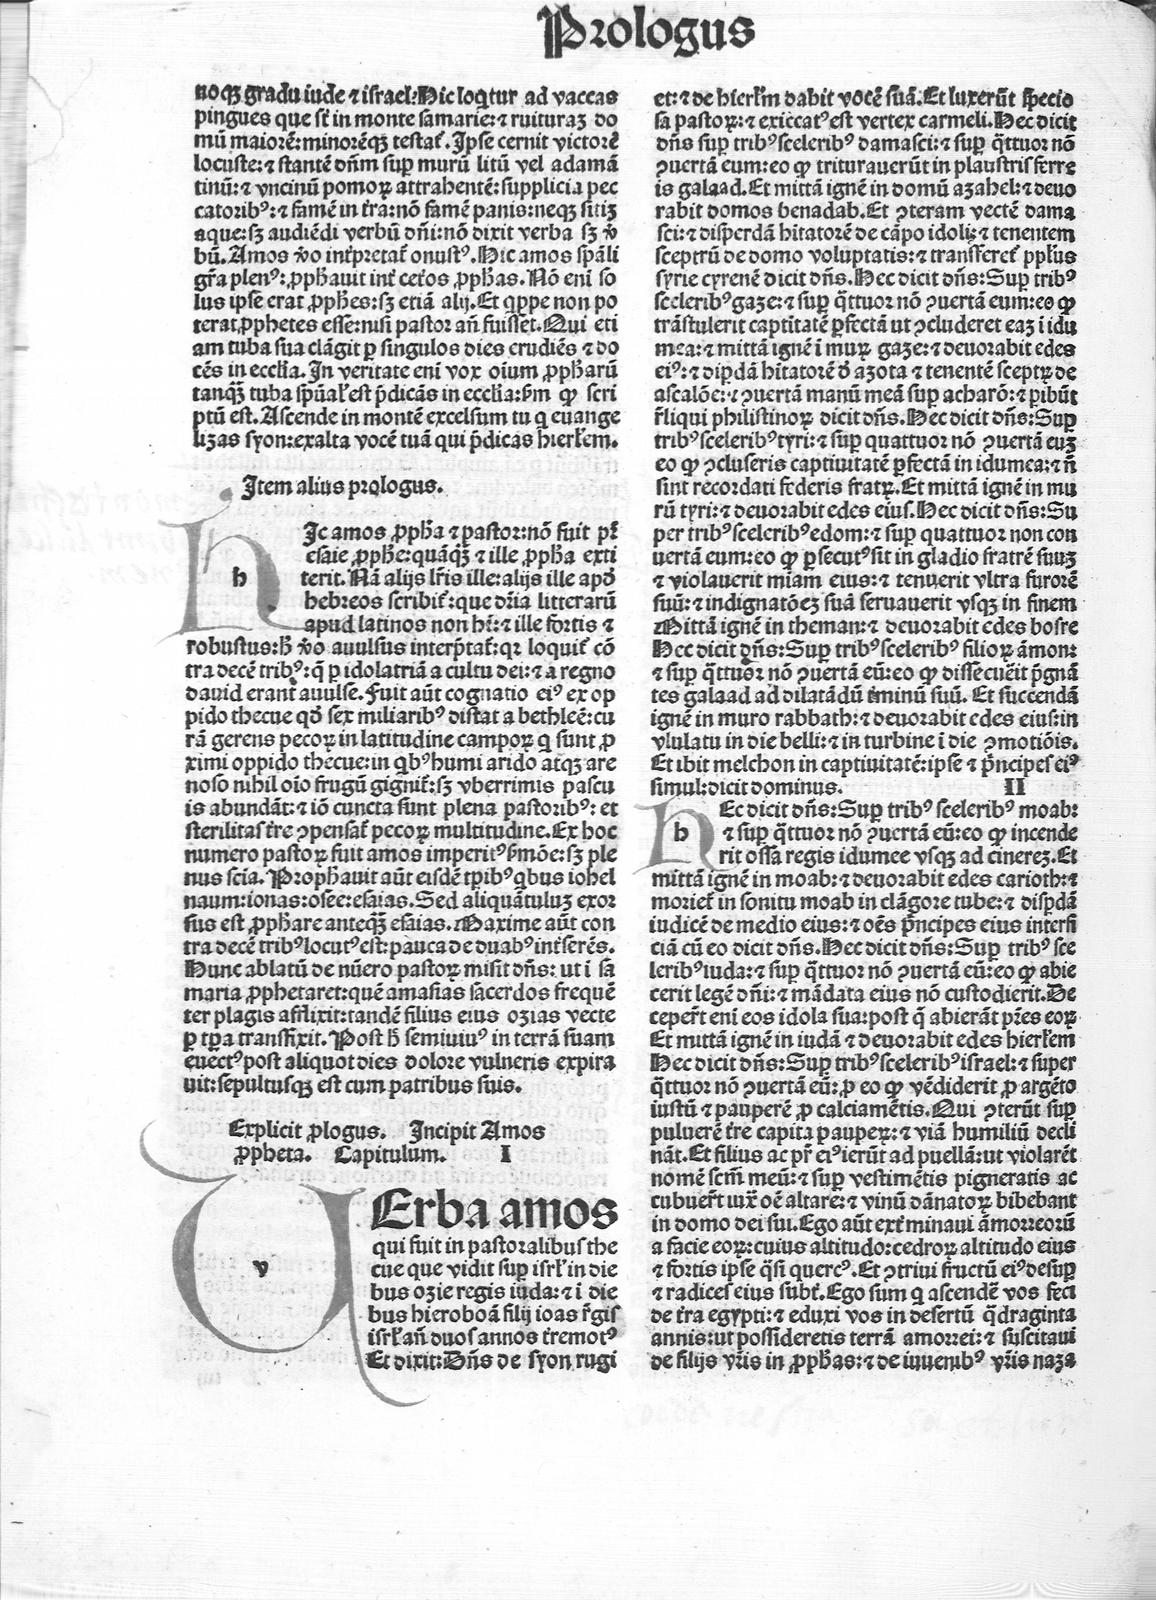 Prologus
noqꝫ gradu iude ⁊ israel: Hic loqͥtur ad vaccas
pingues que st̄ in monte samarie: ⁊ ruituraꝫ do
mū maiorē: minorēqꝫ testat᷑. Ipse cernit victorē
locuste: ⁊ stantē dn̄m suꝑ murū litū vel adamā
tinū: ⁊ vncinū pomoꝝ attrahentē: supplicia pec
catoribꝰ: ⁊ famē in t̄ra: nō famē panis: neqꝫ sitiꝫ
aque: sꝫ audiēdi verbū dn̄i: nō dixit verba sꝫ v̄
bū. Amos v̄o int̄pretat᷑ onustꝰ. Hic amos spāli
gr̄a plenꝰ: ꝓphauit int̄ cet̄os ꝓphas. Nō eni so
lus ipse erat ꝓphes: sꝫ etiā alij. Et qͥppe non po
terat ꝓphetes esse: nisi pastor an̄ fuisset. Qui eti
am tuba sua clāgit ꝑ singulos dies erudiēs ⁊ do
cēs in ecclia. In veritate eni vox oium ꝓpharū
tanqꝫ tuba spūal᷑ est p̄dicās in ecclia: ẜm ꝙ scri
ptū est. Ascende in montē excelsum tu q euange
lizas syon: exalta vocē tuā qui p̄dicas hierl̄em.
Item alius prologus.
h
Ic amos ꝓpha ⁊ pastor: nō fuit pr̄
esaie ꝓphe: quāqꝫ ⁊ ille ꝓpha exti
terit. Nā alijs lr̄is ille: alijs ille apd̄
hebreos scribit᷑: que dr̄ia litterarū
apud latinos non hr̄: ⁊ ille fortis ⁊
robustus: h̄ v̄o auulsus interp̄tat᷑: qꝛ loquit᷑ cō
tra decē tribꝰ: q̄ ꝑ idolatriā a cultu dei: ⁊ a regno
dauid erant auulse. Fuit aūt cognatio eiꝰ ex op
pido thecue qd̄ sex miliaribꝰ distat a bethleē: cu
rā gerens pecoꝝ in latitudine campoꝝ q̄ sunt ꝓ
ximi oppido thecue: in qͥbꝰ humi arido atqꝫ are
noso nihil oīo frugū gignit᷑: sꝫ vberrimis pascu
is abundāt: ⁊ iō cuncta sunt plena pastoribꝰ: et
sterilitas t̄re ꝯpensat᷑ pecoꝝ multitudine. Ex hoc
numero pastoꝝ fuit amos imperitꝰ ẜmōe: sꝫ ple
nus scīa. Prophauit aūt eisdē tp̄ibꝰ qͥbus iohel
naum: ionas: osee: esaias. Sed aliquātuluꝫ exor
sus est ꝓphare anteqꝫ esaias. Maxime aūt con
tra decē tribꝰ locutꝰ est: pauca de duabꝰ int̄serēs.
Hunc ablatū de nūero pastoꝝ misit dn̄s: ut ī sa
maria ꝓphetaret: quē amasias sacerdos frequē
ter plagis afflixit: tandē filius eius ozias vecte
ꝑ tp̄a transfixit. Post h̄ semiuiuꝰ in terrā suam
euectꝰ post aliquot dies dolore vulneris expira
uit: sepultusqꝫ est cum patribus suis.
Explicit ꝓlogus. Incipit Amos
ꝓpheta. Capitulum. I
v
Erba amos
qui fuit in pastoralibus the
cue que vidit suꝑ isrl̄ in die
bus ozie regis iuda: ⁊ ī die
bus hieroboā filij ioas r̄gis
isrl̄ an̄ duos annos t̄remotꝰ
Et dixit: Dn̄s de syon rugi
et: ⁊ de hierl̄m dabit vocē suā. Et luxerūt specio
sa pastoꝝ: ⁊ exiccatꝰ est vertex carmeli. Hec dicit
dn̄s suꝑ tribꝰ sceleribꝰ damasci: ⁊ suꝑ qͣttuor nō
ꝯuertā eum: eo ꝙ triturauerūt in plaustris ferre
is galaad. Et mittā ignē in domū azahel: ⁊ deuo
rabit domos benadab. Et ꝯteram vectē dama
sci: ⁊ disperdā hītatorē de cāpo idoli: ⁊ tenentem
sceptrū de domo voluptatis: ⁊ transferet᷑ pplus
syrie cyrenē dicit dn̄s. Hec dicit dn̄s: Suꝑ tribꝰ
sceleribꝰ gaze: ⁊ suꝑ qͣttuor nō ꝯuertā eum: eo ꝙ
trāstulerit captītatē ꝑfectā ut ꝯcluderet eaꝫ ī idu
mea: ⁊ mittā ignē ī muꝝ gaze: ⁊ deuorabit edes
eiꝰ: ⁊ diꝑdā hītatorē d̄ azota ⁊ tenentē sceptꝝ de
ascalōe: ⁊ ꝯuertā manū meā suꝑ acharō: ⁊ ꝑibūt
r̄liqui philistinoꝝ dicit dn̄s. Hec dicit dn̄s: Suꝑ
tribꝰ sceleribꝰ tyri: ⁊ suꝑ quattuor nō ꝯuertā euꝫ
eo ꝙ ꝯcluseris captiuitatē ꝑfectā in idumea: ⁊ n̄
sint recordati federis fratꝝ. Et mittā ignē in mu
rū tyri: ⁊ deuorabit edes eius. Hec dicit dn̄s: Su
per tribꝰ sceleribꝰ edom: ⁊ suꝑ quattuor non con
uertā eum: eo ꝙ ꝑsecutꝰ sit in gladio fratrē suuꝫ
⁊ violauerit mīam eius: ⁊ tenuerit vltra furorē
suū: ⁊ indignatōeꝫ suā seruauerit vsqꝫ in finem
Mittā ignē in theman: ⁊ deuorabit edes bosre
Hec dicit dn̄s: Suꝑ tribꝰ sceleribꝰ filioꝝ āmon:
⁊ suꝑ qͣttuor nō ꝯuertā eū: eo ꝙ dissecuēit p̄gnā
tes galaad ad dilatādū t̄minū suū. Et succendā
ignē in muro rabbath: ⁊ deuorabit edes eius: in
vlulatu in die belli: ⁊ in turbine ī die ꝯmotiōis.
Et ibit melchon in captiuitatē: ipse ⁊ p̄ncipes eiꝰ
simul: dicit dominus. II
h
Ec dicit dn̄s: Suꝑ tribꝰ sceleribꝰ moab:
⁊ suꝑ qͣttuor nō ꝯuertā eū: eo ꝙ incende
rit ossa regis idumee vsqꝫ ad cinereꝫ. Et
mittā ignē in moab: ⁊ deuorabit edes carioth: ⁊
moriet᷑ in sonitu moab in clāgore tube: ⁊ disꝑdā
iudicē de medio eius: ⁊ oēs p̄ncipes eius interfi
ciā cū eo dicit dn̄s. Hec dicit dn̄s: Suꝑ tribꝰ sce
leribꝰ iuda: ⁊ suꝑ qͣttuor nō ꝯuertā eū: eo ꝙ abie
cerit legē dn̄i: ⁊ mādata eius nō custodierit. De
ceper̄t eni eos idola sua: post q̄ abierāt pr̄es eoꝝ
Et mittā ignē in iudā ⁊ deuorabit edes hierl̄em
Hec dicit dn̄s: Suꝑ tribꝰ sceleribꝰ israel: ⁊ super
qͣttuor nō ꝯuertā eū: ꝓ eo ꝙ vēdiderit ꝓ argēto
iustū ⁊ pauperē ꝓ calciamētis. Qui ꝯterūt suꝑ
puluerē t̄re capita pauꝑeꝝ: ⁊ viā humiliū decli
nāt. Et filius ac pr̄ eiꝰ ierūt ad puellā: ut violarēt
nomē scm̄ meū: ⁊ suꝑ vestimētis pigneratis ac
cubuer̄t iux̄ oē altare: ⁊ vinū dānatoꝝ bibebant
in domo dei sui. Ego aūt ext̄minaui āmorreorū
a facie eoꝝ: cuius altitudo: cedroꝝ altitudo eius
⁊ fortis ipse qͣsi quercꝰ. Et ꝯtriui fructū eiꝰ desuꝑ
⁊ radices eius subt̄. Ego sum q̄ ascendē vos feci
de t̄ra egypti: ⁊ eduxi vos in desertū qͣdraginta
annis: ut possideretis terrā amorrei: ⁊ suscitaui
de filijs vr̄is in ꝓphas: ⁊ de iuuenibꝰ vr̄is naza